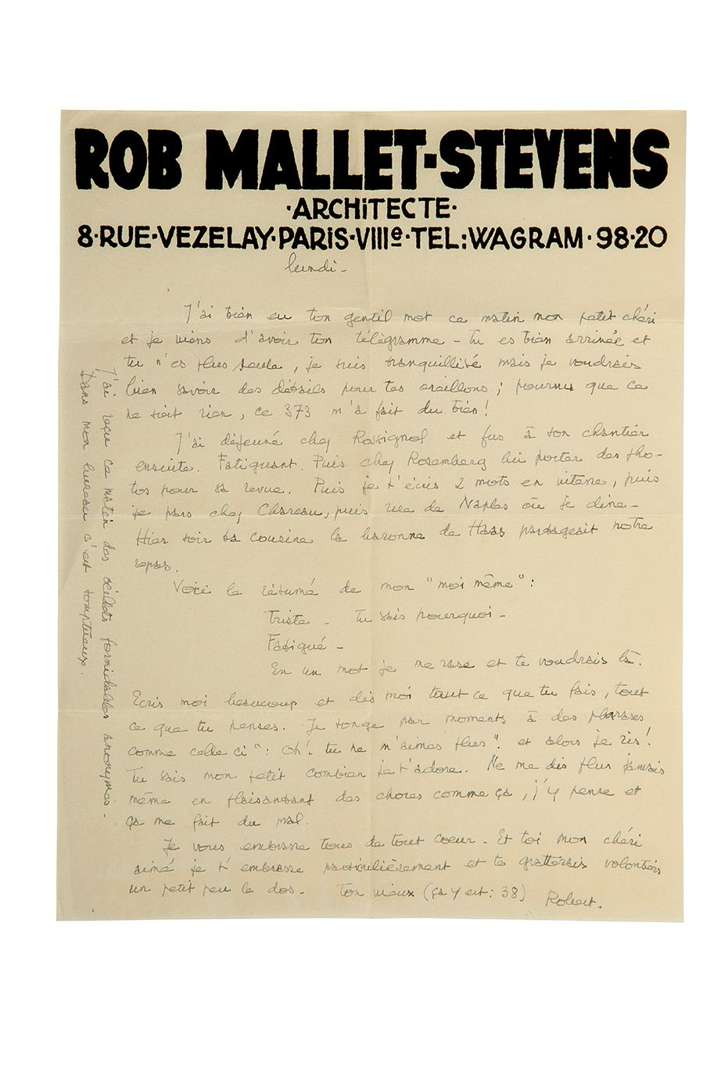 ROB MALLET-STEVENS
·ARCHiTECTE·
8·RUE·VEZELAY·PARiS·VIIIe·TEL:WAGRAM·98·20
lundi -
J'ai bien eu ton gentil mot ce matin mon petit chéri
et je viens d'avoir ton télégramme - Tu es bien arrivée et
tu n'es plus seule, je suis tranquillisé mais je voudrais
bien savoir des détails pour tes oreillons ; pourvu que ce
ne soit rien, ce 373 m'a fait du bien !
J'ai déjeuné chez Rossignol et fus à son chantier
ensuite. Fatiguant. Puis chez Rosemberg lui porter des pho-
tos pour sa revue. Puis je t'écris 2 mots en vitesse, puis
je pars chez Chareau, puis rue de Naples où je dîne -
Hier soir ta cousine la baronne de Hass partageait notre
repas.
Voici le résumé de mon "moi même" :
Triste - Tu sais pourquoi -
Fatigué -
En un mot je me rase et te voudrais là.
Ecris moi beaucoup et dis moi tout ce que tu fais, tout
ce que tu penses. Je songe par moments à des phrases
comme celle ci : "Oh! tu ne m'aimes plus" et alors je ris!
Tu sais mon petit combien je t'adore. Ne me dis plus jamais
même en plaisantant des choses comme ça, j'y pense et
ça me fait du mal.
Je vous embrasse tous de tout coeur - Et toi mon chéri
aimé je t'embrasse particulièrement et te gratterais volontiers
un petit peu le dos - ton vieux (ça y est : 38) Robert.
J'ai reçu ce matin des œillets formidables anonymes -
Dans mon bureau c'est somptueux.